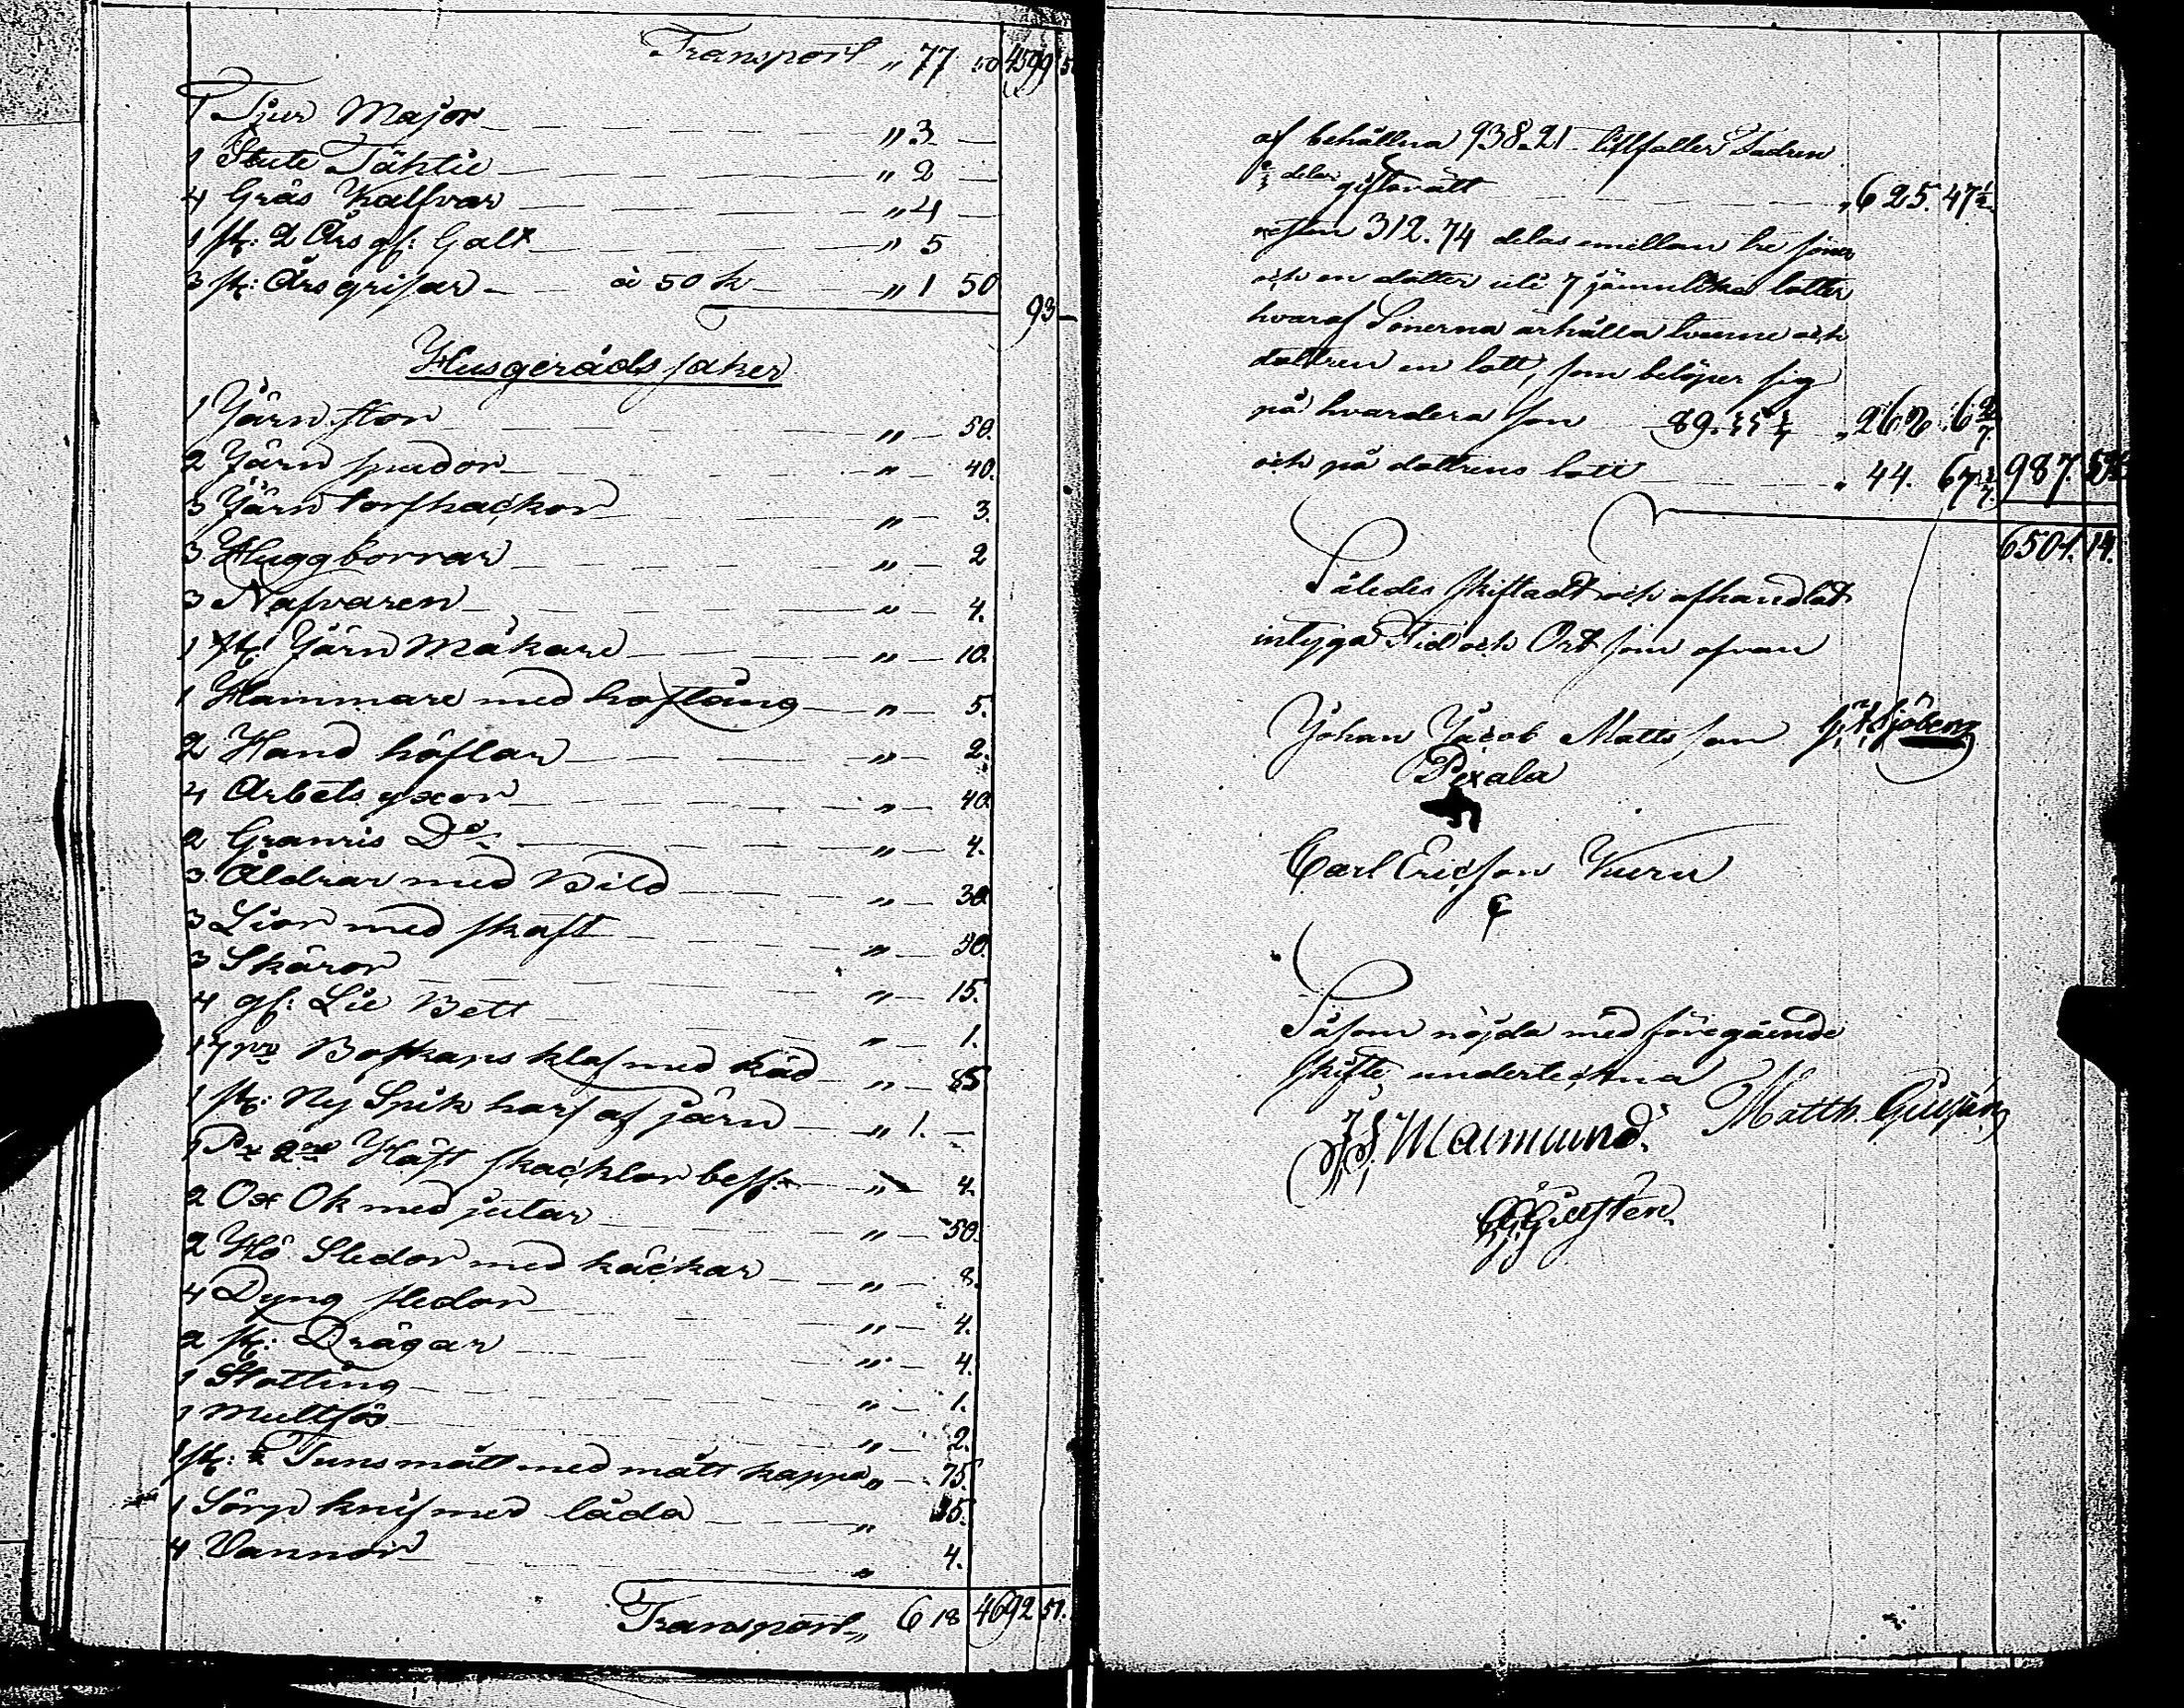 Transport „ 77 50 4599 51
1 Tjur Major „ 3 —
1 Stute Tähtie „ 2 —
4 Gräs Kalfvar „ 4 —
1 st: 2 Års gl: Galt „ 5
3 st: Års grisar à 50 k „ 1 50
93 —
Husgeråds saker
1 Järn stor „ — 50.
2 Järn spador „ — 40.
3 Järn torfhackor „ — 3.
3 Huggborrar „ — 2
3 Nafvaren „ — 4.
1 st. Järn Måkare „ — 10.
1 Hammare med hoftång „ — 5.
2 Hand höflar „ — 2.
4 Arbets yxor „ — 40.
2 Granris Do „ — 4.
3 Åldrar med Bild „ — 30
3 Lior med skaft „ — 30.
3 Skäror „ — 15.
4 gl: Lie Bett „ — 1.
17 Boskaps klaf med „ — 85
1 st: Ny Spik harf af järn „ 1. —
1 Pr Häst skacklor „ — 4.
2 Ox Ok med jutar „ — 50.
2 Hö Sledor med häckar „ — 8.
4 Dyng sledor „ — 4.
2 st: Drågar „ — 4.
1 Stötting „ — 1.
1 „ — 2.
1 st: ½ Tuns mått med mått kappa „ — 75.
1 Sörp knif med låda „ 35.
4 Vannor „ 4.
Transport „ 6 18 4692 51.
af behållna 938.21 tillfaller Fadren
⅔ delar giftorätt „ 625. 47½
resten 312.74 delas emellan tre söner
och en dotter uti 7 jämnlika lotter
hvaraf Sönerna erhålla tvenne och
dottren en lott, som belöper sig
på hvardera son 89. „ 262. 6 2/7
och på dottrens lott „ 44. 67 987.
6501. 14.
Således skiftadt och afhandlat
intyga Tid och Ort som ofvan
Johan Jacob Matts son Sjöberg
Pexala
Carl Ericson Kuru
Såsom nöjda med föregående
skifte underteckna
Malmlund. Matth.